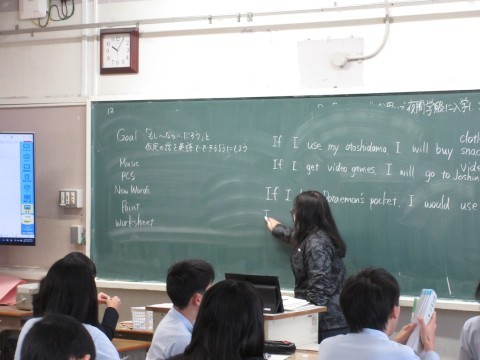 12
に入学
Goal 「もし〜なら〜だろう」と
仮定の話を英語でできるようにしよう
Music
PCS
New Words
Point
Worksheet
If I use my otoshidama, I will buy
clothes
snac
If I get video games, I will go to Joshin
vide
If I Doraemon's pocket, I would use
I